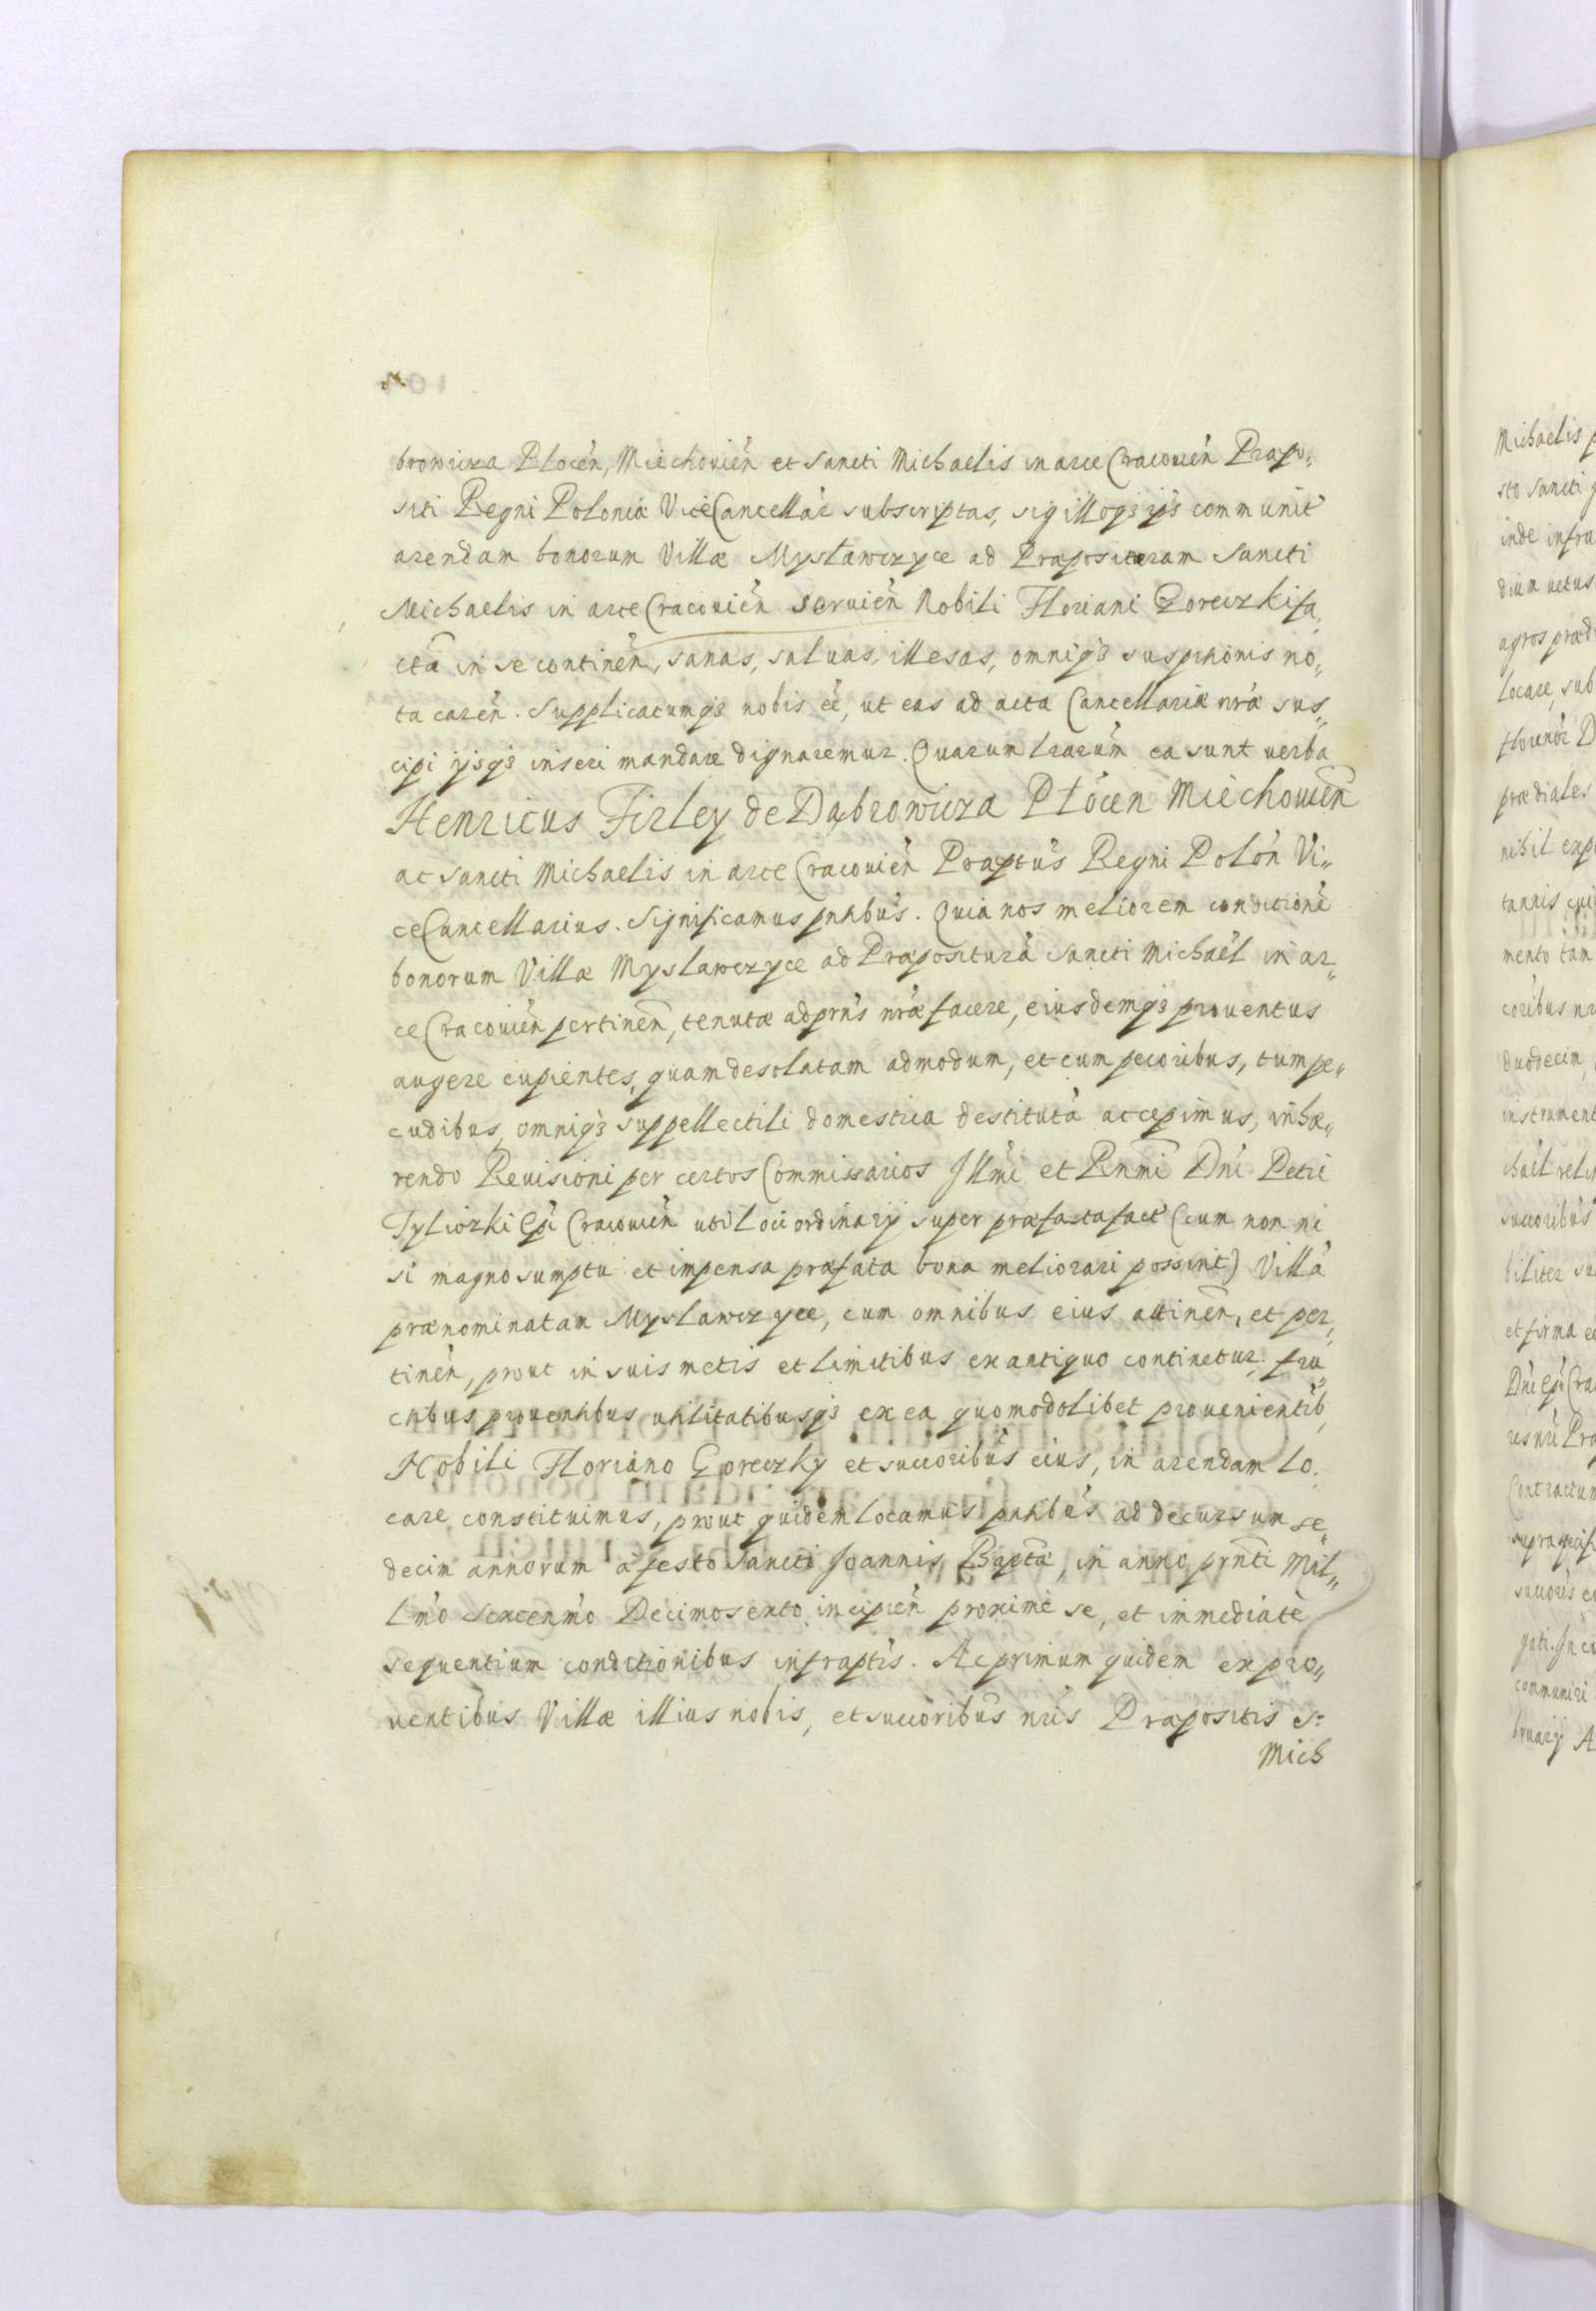 browicza Plocen, Miechouien et Sancti Michaelis in arce Cracouien Præpo„
siti Regni Poloniæ ViceCancellar subscriptas, sigilloqз ipз communit
arendam bonorum Villæ Mysławczyce ad Præposituram Sancti
Michaelis in arce Cracouien seruien Nobili Floriani Goreczki fa„
ctã in se continen, sanas, saluas, illesas, omniqз suspitionis no„
ta caren. Supplicatumqз nobis eẽ, ut eas ad acta Cancellariæ nræ sus„
cipi ijsqз inseri mandare dignaremur. Quarum lrarum ea sunt uerba
Henricus Firley de Dąbrowicza Płocen Miechouien
ac Sancti Michaelis in arce Cracouien Præptus Regni Polon Vi„
ceCancellarius. Significamus pntibus. Quia nos meliorem conditionẽ
bonorum Villæ Myslawczyce ad Præpositurã Sancti Michael in ar„
ce Cracouien pertinen, tenutæ ad prns nræ facere, eiusdemqз prouentus
augere cupientes, quam desolatam admodum, et cum pecoribus, tum pe„
cudibus, omniqз suppellectili domestica destitutã accepimus, inhæ„
rendo Reuisioni per certos Commissarios Illmi et Rnmi Dni Petri
Tyliczki Epi Cracouien uti loci ordinarij super præfacta fact (cum non ni
si magno sumptu et impensa præfata bona meliorari possint) Villã
prænominatam Myslawczyce, cum omnibus eius attinen, et per„
tinen, prout in suis metis et limitibus ex antiquo continetur, fru„
ctibus prouentibus utilitatibusqз ex ea quomodolibet prouenientib,
Nobili Floriano Goreczky et succoribus eius, in arendam lo„
care constituimus, prout quidem locamus pntibus ad decursum se„
decim annorum a festo Sancti Joannis Baptæ, in anno prnti Mil„
lmo sexcenmo Decimosexto incipien proxime se, et immediate
sequentium conditionibus infraptis. Ac primum quidem ex pro„
uentibus Villæ illius nobis, et succoribus nris Præpositis S:
Mich